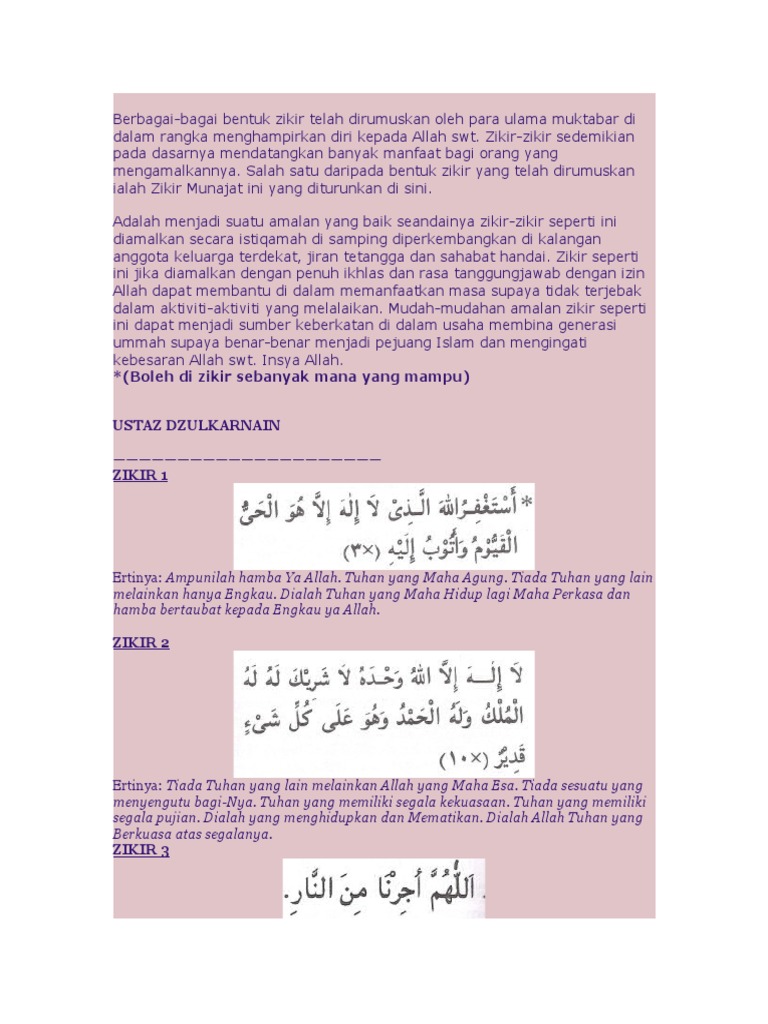 Berbagai-bagai bentuk zikir telah dirumuskan oleh para ulama muktabar di
dalam rangka menghampirkan diri kepada Allah swt. Zikir-zikir sedemikian
pada dasarnya mendatangkan banyak manfaat bagi orang yang
mengamalkannya. Salah satu daripada bentuk zikir yang telah dirumuskan
ialah Zikir Munajat ini yang diturunkan di sini.
Adalah menjadi suatu amalan yang baik seandainya zikir-zikir seperti ini
diamalkan secara istiqamah di samping diperkembangkan di kalangan
anggota keluarga terdekat, jiran tetangga dan sahabat handai. Zikir seperti
ini jika diamalkan dengan penuh ikhlas dan rasa tanggungjawab dengan izin
Allah dapat membantu di dalam memanfaatkan masa supaya tidak terjebak
dalam aktiviti-aktiviti yang melalaikan. Mudah-mudahan amalan zikir seperti
ini dapat menjadi sumber keberkatan di dalam usaha membina generasi
ummah supaya benar-benar menjadi pejuang Islam dan mengingati
kebesaran Allah swt. Insya Allah.
*(Boleh di zikir sebanyak mana yang mampu)
USTAZ DZULKARNAIN
—————————————————————
ZIKIR 1
* أَسْتَغْفِرُاللهَ الَّذِىْ لَا إِلٰهَ إِلَّا هُوَ الْحَىُّ
الْقَيُّوْمُ وَأَتُوْبُ إِلَيْهِ (×٣)
Ertinya: Ampunilah hamba Ya Allah. Tuhan yang Maha Agung. Tiada Tuhan yang lain
melainkan hanya Engkau. Dialah Tuhan yang Maha Hidup lagi Maha Perkasa dan
hamba bertaubat kepada Engkau ya Allah.
ZIKIR 2
لَا إِلٰـهَ إِلَّا اللهُ وَحْدَهُ لَا شَرِيْكَ لَهُ لَهُ
الْمُلْكُ وَلَهُ الْحَمْدُ وَهُوَ عَلَى كُلِّ شَىْءٍ
قَدِيْرٌ (×١٠)
Ertinya: Tiada Tuhan yang lain melainkan Allah yang Maha Esa. Tiada sesuatu yang
menyengutu bagi-Nya. Tuhan yang memiliki segala kekuasaan. Tuhan yang memiliki
segala pujian. Dialah yang menghidupkan dan Mematikan. Dialah Allah Tuhan yang
Berkuasa atas segalanya.
ZIKIR 3
. اَللّٰهُمَّ أَجِرْنَا مِنَ النَّارِ.